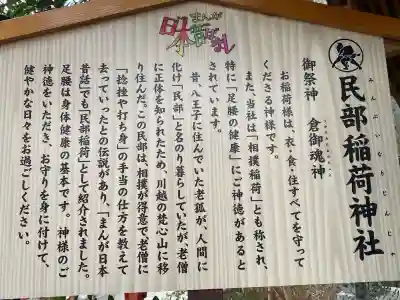 まんが
日本昔ばなし
民部稲荷神社
みんぶいなりじんじゃ
御祭神　倉御魂神
お稲荷様は、衣・食・住すべてを守って
くださる神様です。
また、当社は「相撲稲荷」とも称され、
特に「足腰の健康」にご神徳があると
されています。
昔、八王子に住んでいた老狐が、人間に
化け「民部」と名のり暮らしていたが、老僧
に正体を知られたため、川越の梵心山に移
り住んだ。この民部は、相撲が得意で、老僧に
「捻挫や打ち身」の手当の仕方を教えて
去っていったとの伝説があり、「まんが日本
昔話」でも「民部稲荷」として紹介されました。
足腰は身体健康の基本です。神様のご
神徳をいただき、お守りを身に付けて、
健やかな日々をお過ごしください。